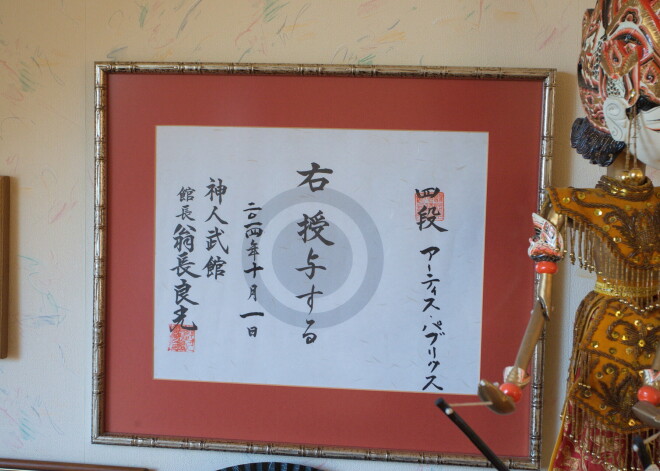 四段 アーティス・パブリクス
右授与する
二〇二四年十月一日
神人武館
館長 翁長良光